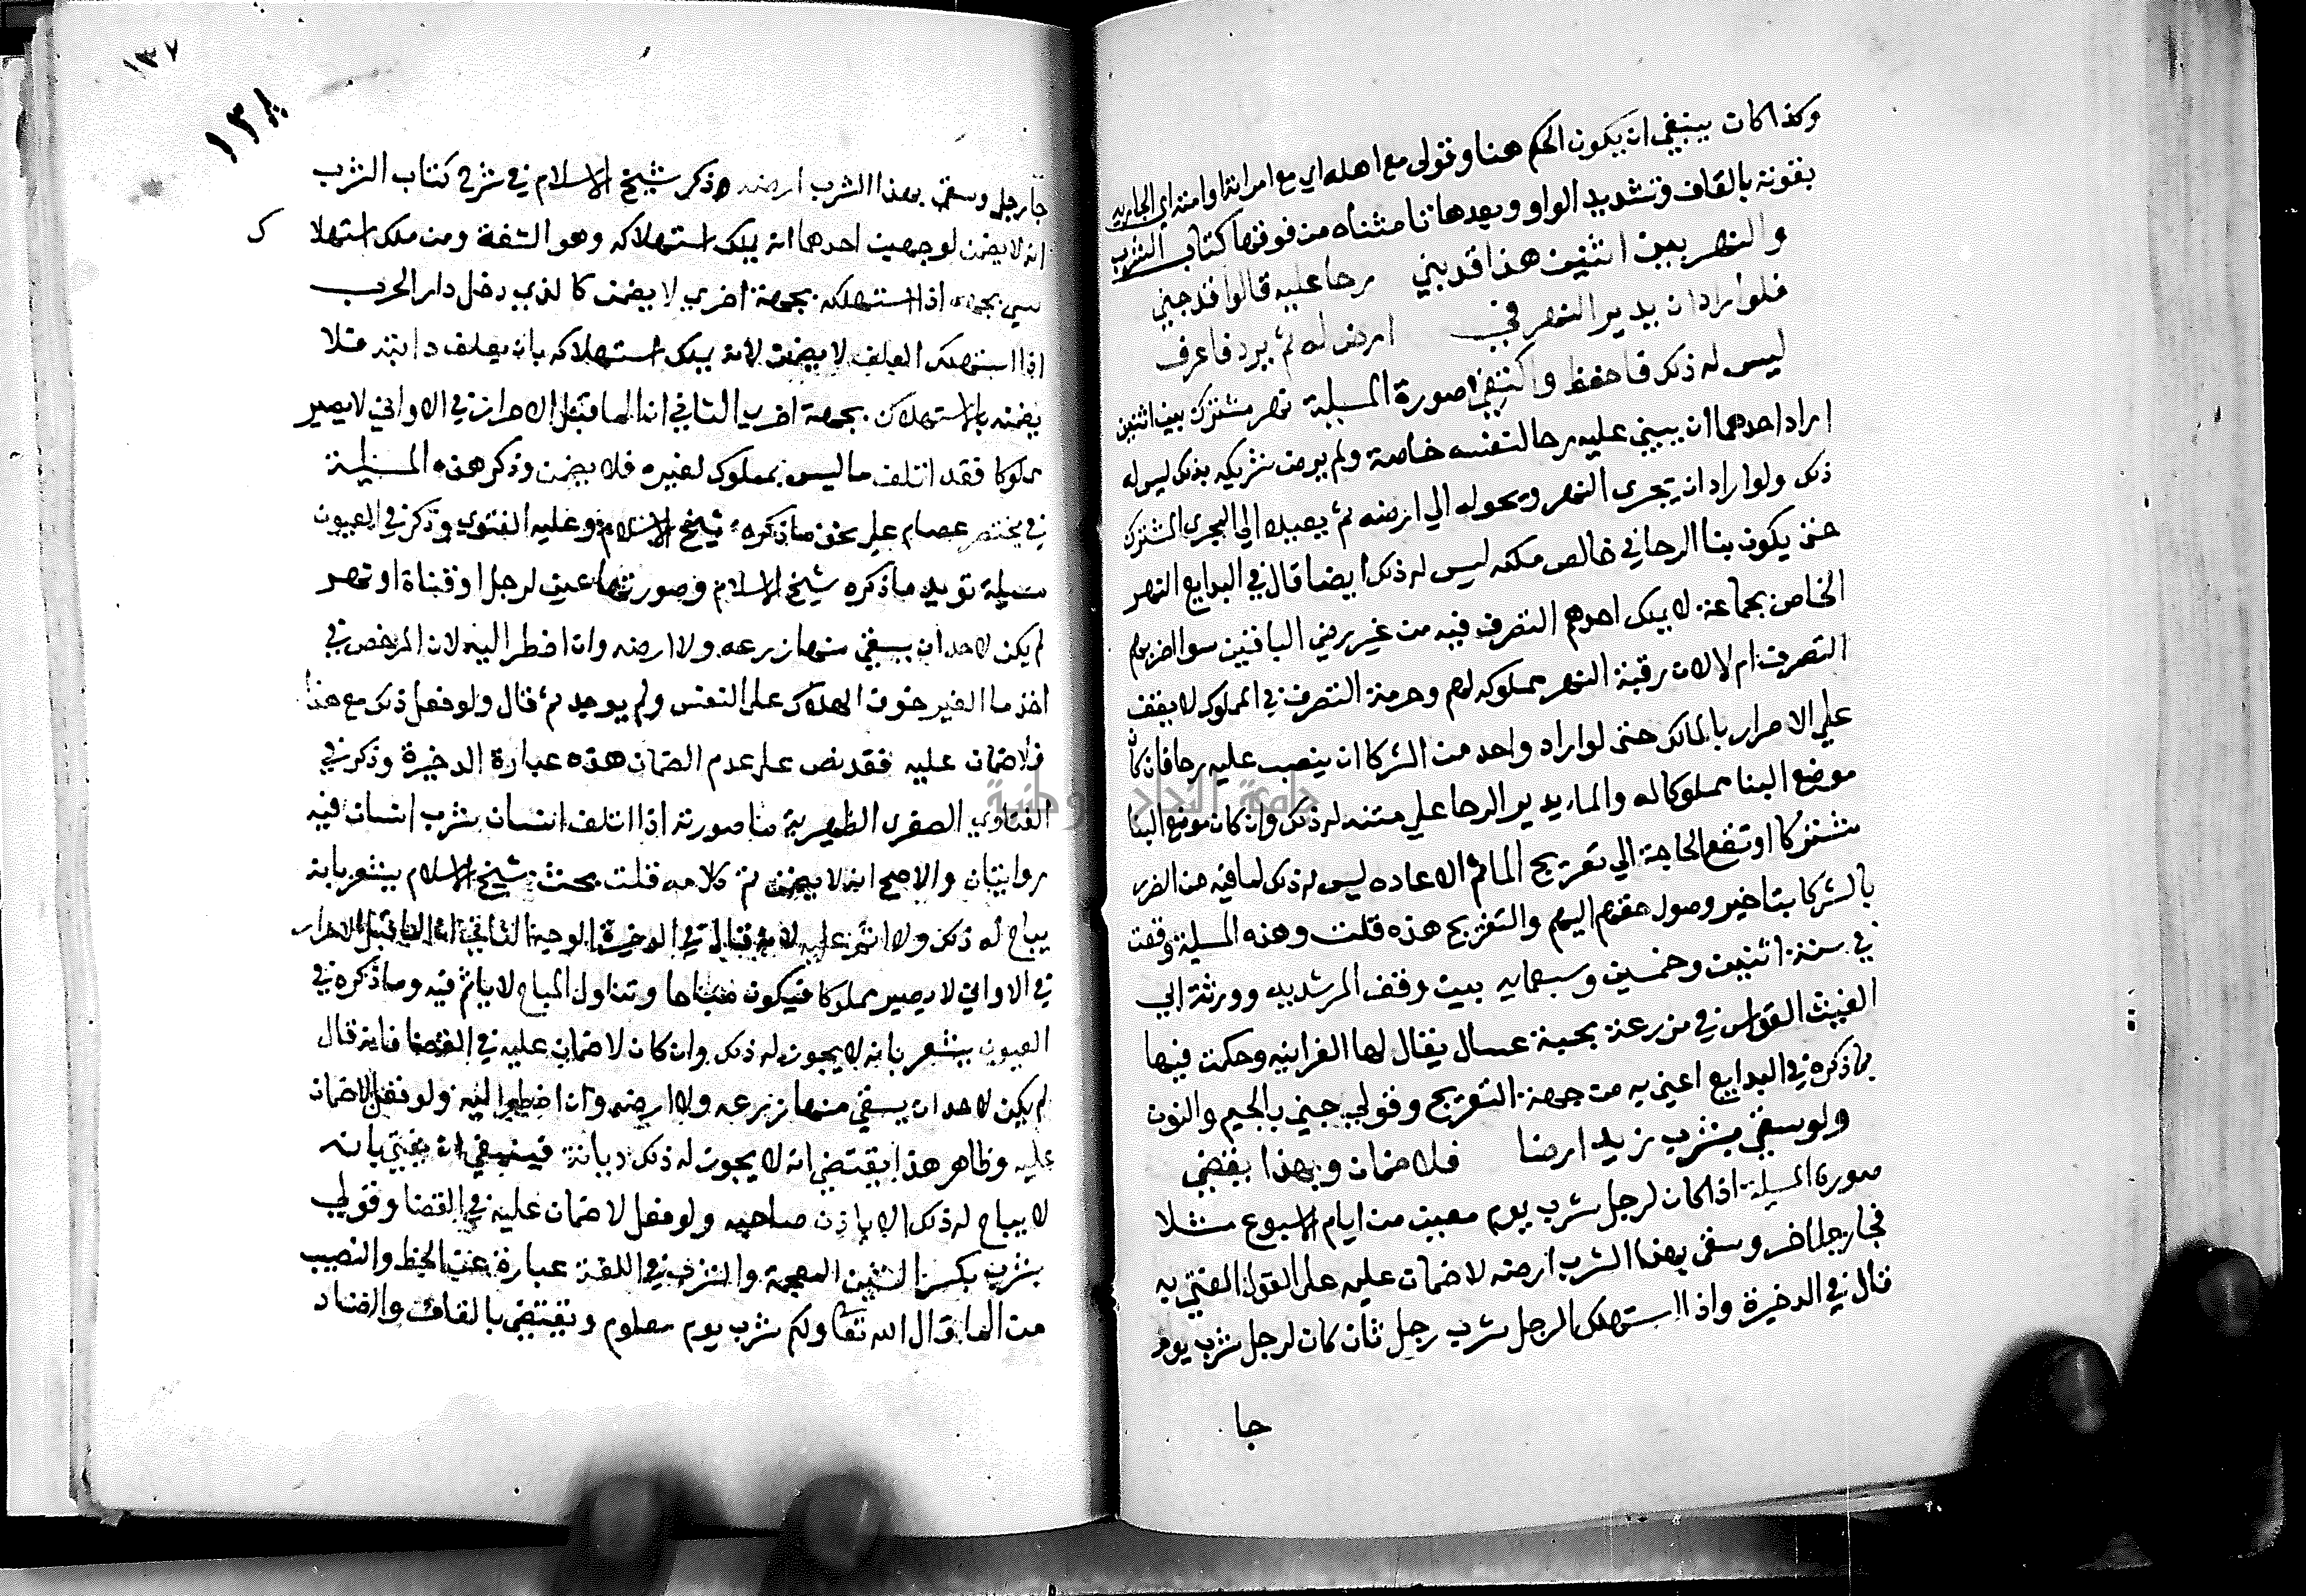 وكذا كان ينبغي ان يكون الحكم هنا وقولي مع اهله اي مع امراته او امته اي الجاريه
بقوته بالقاف وتشديد الواو وبعدها تا مثناه من فوقها كتاب الشرب
والنهر بين اثنين هذا قد بني رحا عليه قالوا قد جني
فلو اراد ان يدير النهر في ارض له ثم يرد فاعرف
ليس له ذلك فاحفظ واكتفي صورة المسيلة نهر مشترك بين اثنين
اراد احدهما ان يبني عليه رحا لنفسه خاصة ولم يرض شريكه بذلك ليس له
ذلك ولو اراد ان يجري النهر ويحوله الي ارضه ثم يعيده الي المجري المشترك
حتى يكون بنا الرحا في خالص ملكه ليس له ذلك ايضا قال في البدايع النهر
الخاص بجماعة لا يملك احدهم التصرف فيه من غير رضي الباقين سوا اضر بهم
التصرف ام لا لان رقبة النهر مملوكه لهم وحرمة التصرف في المملوك لا يقف
علي الاضرار بالمالك حتى لو اراد واحد من الشركا ان ينصب عليه رحا فان كان
موضع البنا مملوكا له والما يدير الرحا علي متنه له ذلك وان كان موضع البنا
مشتركا او تقع الحاجة الي تعريج الما ثم الاعاده ليس له ذلك لما فيه من الضرر
بالشركا بتاخير وصول حقهم اليهم والتعريج هذه قلت وهذه المسيلة وقعت
في سنة اثنين وخمسين وسبعمايه بين وقف المرشديه وورثة ابي
الغيث القواس في مزرعة بحبة عسال يقال لها الفرابنيه وحكمت فيها
بما ذكره في البدايع اعني به من جهة التعريج وقولي جني بالجيم والنون
ولو سقي بشرب زيد ارضا فلا ضمان وبهذا يقضي
صورة المسيلة اذا كان لرجل شرب يوم معين من ايام الاسبوع مثلا
فجا رجل اخر وسقى بهذا الشرب ارضه لا ضمان عليه على القول المفتي به
قال في الدخيرة واذا استهلك الرجل شرب رجل ثان كان لرجل شرب يوم
جا
١٣٧
١٣٨
جا رجل وسقي بهذا الشرب ارضه ذكر شيخ الاسلام في شرح كتاب الشرب
انه لا يضمن لوجهين احدهما انه يملك استهلاكه وهو الشفة ومن ملك استهلا ك
شي بجهه اذا استهلكه بجهة اخري لا يضمن كالذي دخل دار الحرب
اذا استهلك العلف لا يضمن لانه يملك استهلاكه بان يعلف دابته فلا
يضمنه بالاستهلاك بجهة اخري الثاني ان الما قبل الاحراز في الاواني لا يصير
مملوكا فقد اتلف ما ليس بمملوك لغيره فلا يضمن وذكر هذه المسيلة
في مختصر عصام على نحو ما ذكره شيخ الاسلام وعليه الفتوي وذكر في العيون
مسيلة تويد ما ذكره شيخ الاسلام وصورتها عين لرجل او قناة او نهر
لم يكن لاحد ان يسقي منها زرعه ولا ارضه وان اضطر اليه لان المرخص في
اخذ ما الغير خوف الهلاك على النفس ولم يوجد ثم قال ولو فعل ذلك مع هذا
فلا ضمان عليه فقد نص على عدم الضمان هذه عبارة الدخيرة وذكر في
الفتاوي الصغري الظهيرية ما صورته اذا اتلف انسان شرب انسان فيه
روايتان والاصح انه لا يضمن تم كلامه قلت بحث شيخ الاسلام يشعر بانه
يباح له ذلك ولا اثم عليه لانه قال في الدخيرة الوجه الثاني ان الما قبل الاحراز
في الاواني لا يصير مملوكا فيكون مباحا وتناول المباح لا ياثم فيه وما ذكره في
العيون يشعر بانه لا يجوز له ذلك وان كان لا ضمان عليه في القضا فانه قال
لم يكن لاحد ان يسقي منها زرعه ولا ارضه وان اضطر اليه ولو فعل لا ضمان
عليه وظاهر هذا يقتضي انه لا يجوز له ذلك ديانة فينبغي ان يفتي بانه
لا يباح له ذلك الا باذن صاحبه ولو فعل لا ضمان عليه في القضا وقولي
بشرب بكسر الشين المعجمة والشرب في اللغة عبارة عن الحظ والنصيب
من الما قال الله تعا ولكم شرب يوم معلوم ويقتضي بالقاف والضاد